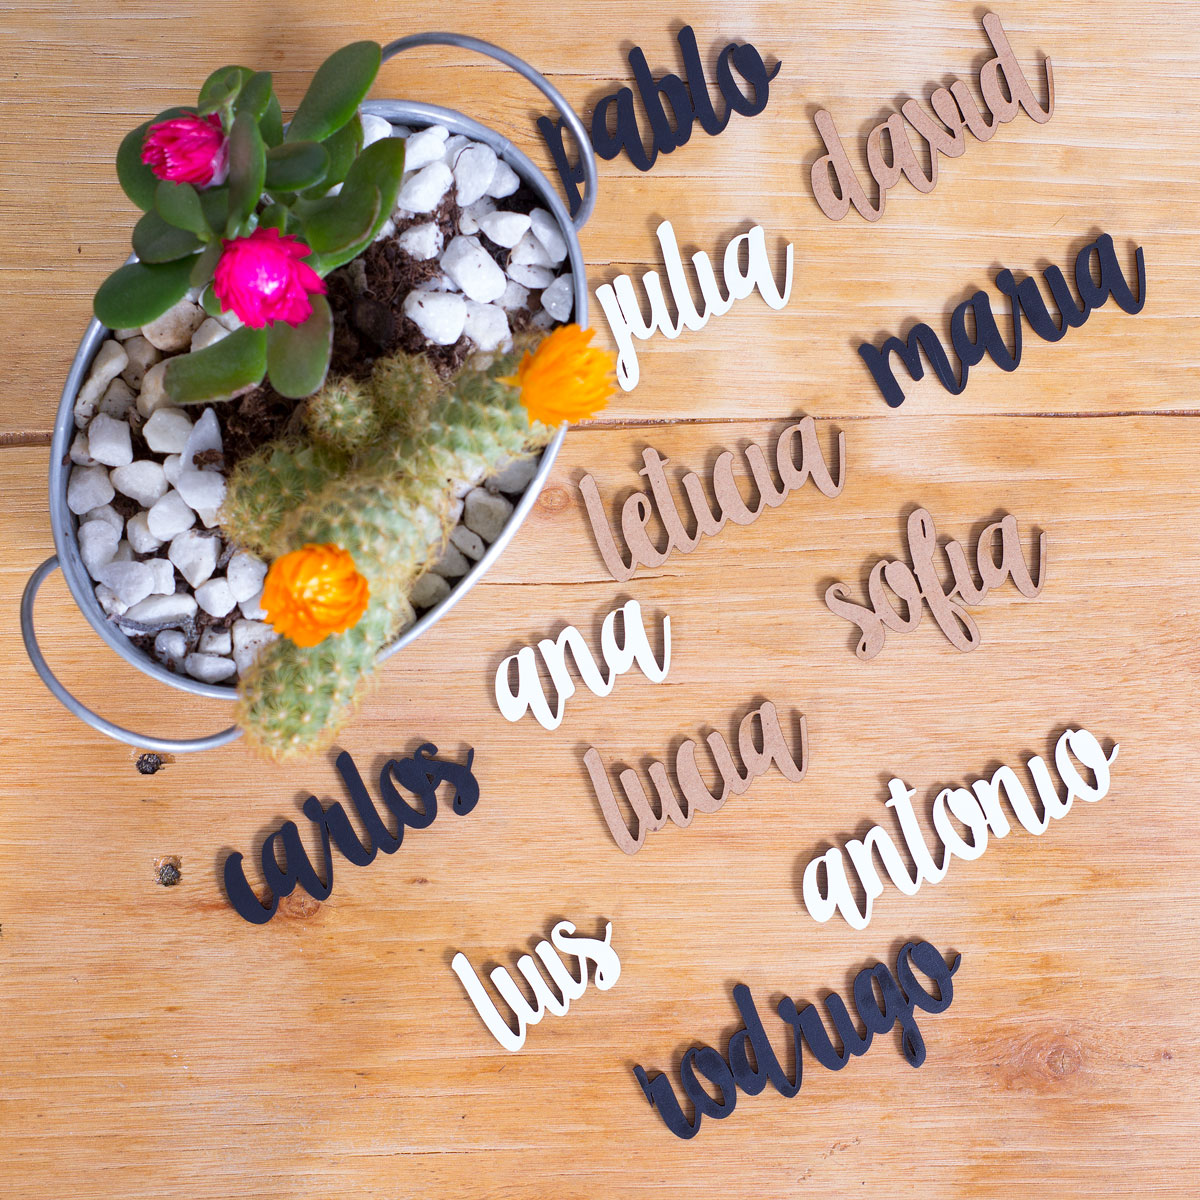 pablo
david
julia
maria
leticia
sofia
ana
lucia
carlos
antonio
luis
rodrigo